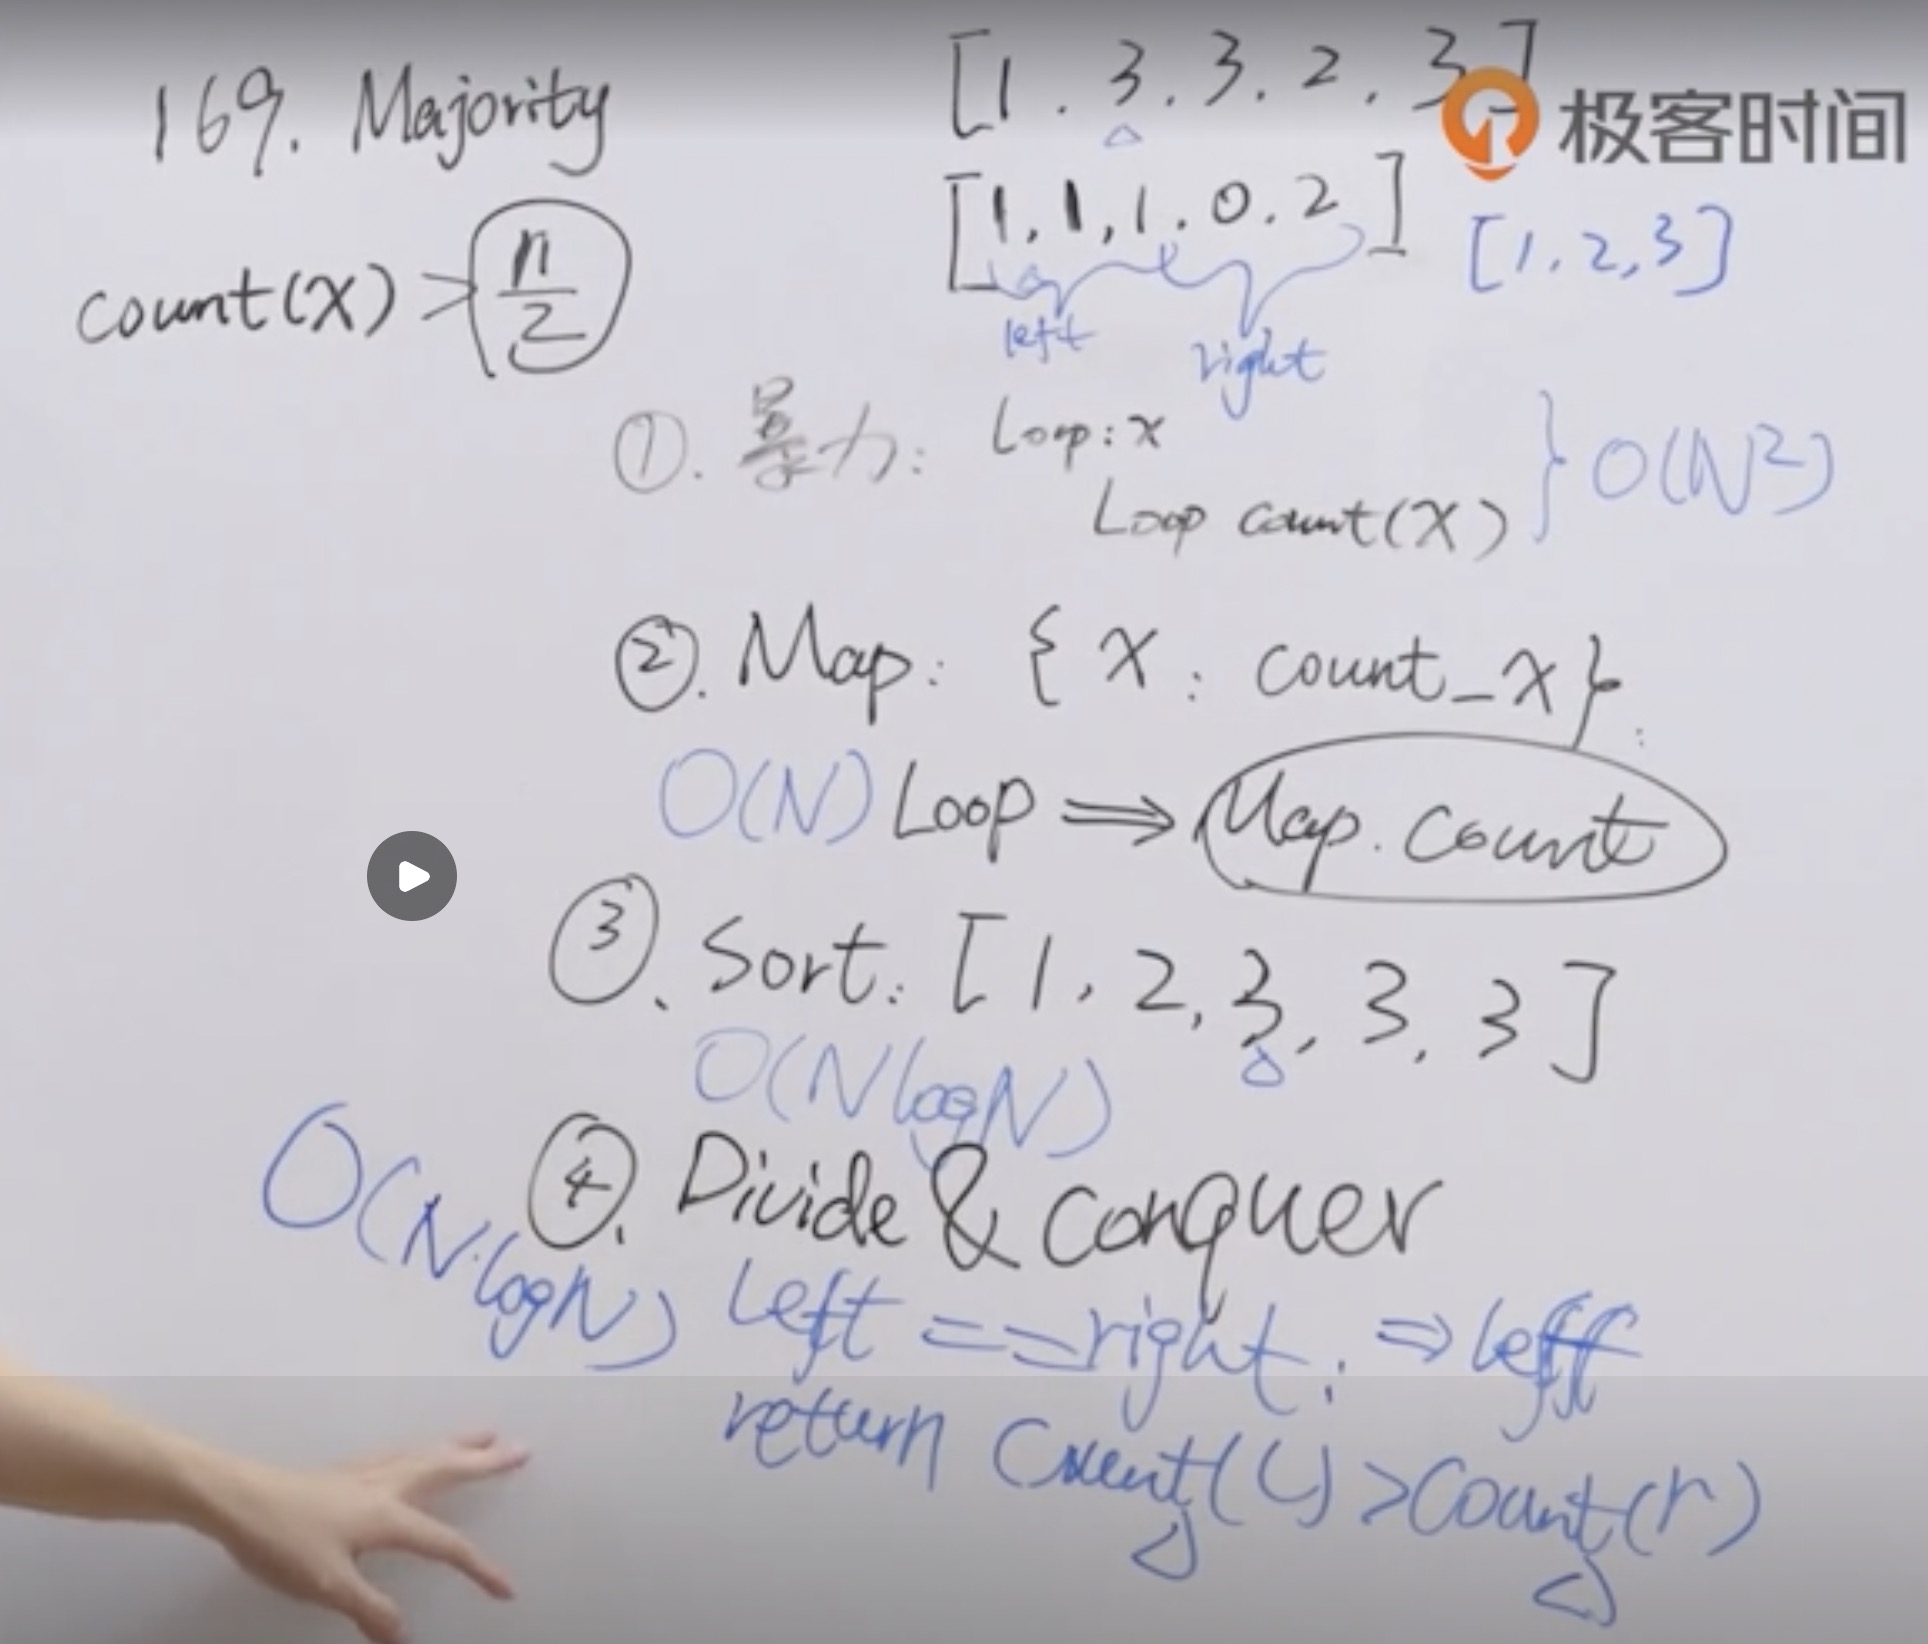 169. Majority
count(x) > n/2
[1. 3. 3. 2. 3]
极客时间
[1, 1, 1. 0. 2]
[1. 2, 3]
left
right
①. 暴力: Loop: x
Loop count(x)
} O(N²)
②. Map: { x : count_x }.
O(N) Loop ⇒ Map. Count
③. Sort: [1, 2, 3, 3, 3]
O(N logN)
④. Divide & conquer
O(N·logN)
left == right: ⇒ left
return Count(L) > Count(r)